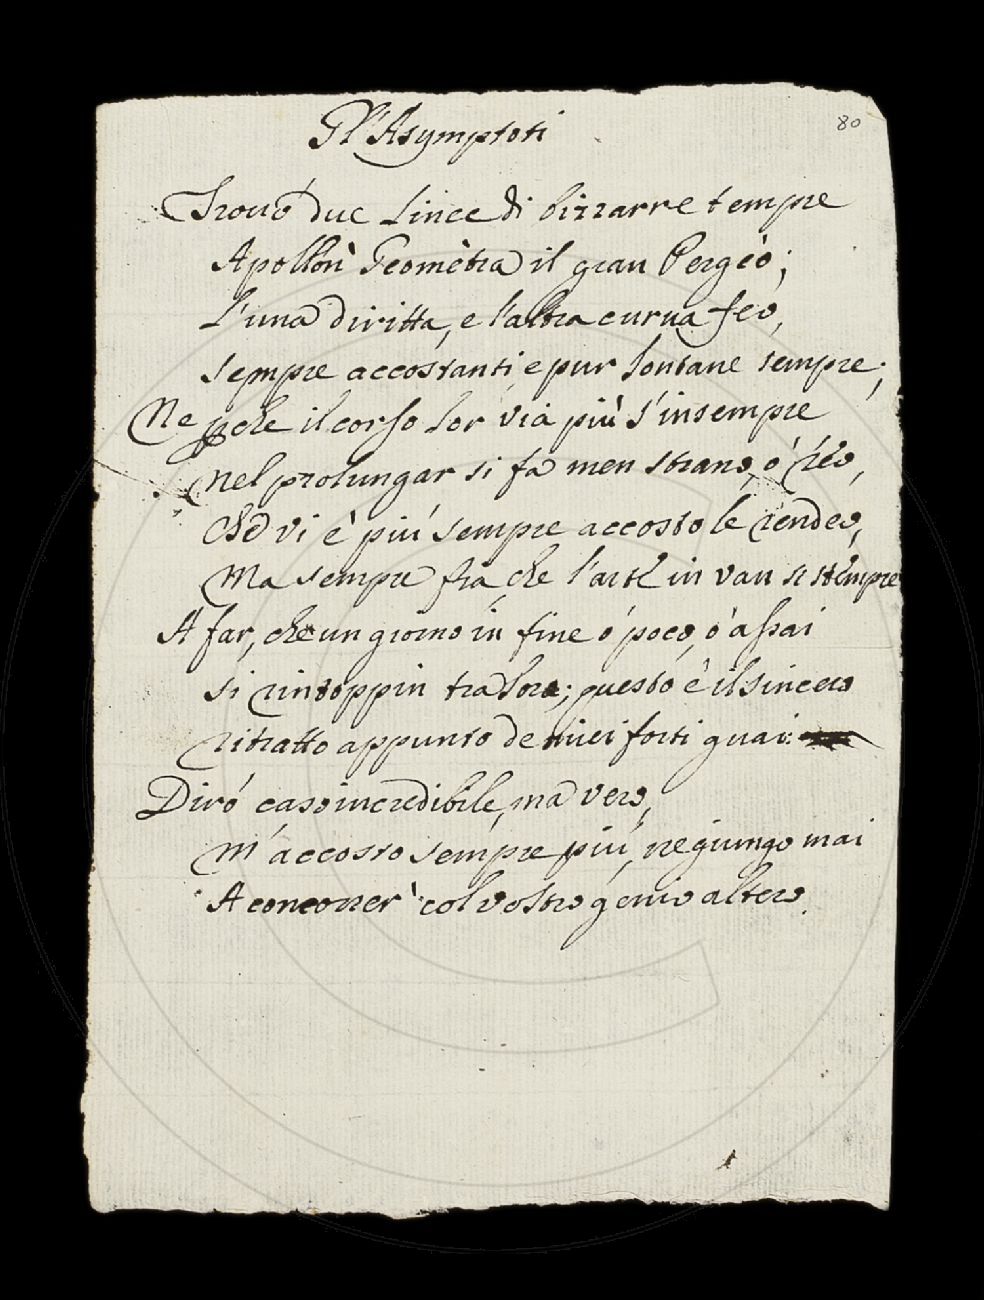 Gl'Asymptoti
80
Trouò due Linee di bizzarre tempre
Apollon' Geomètra il gran Pergèo;
L'una diritta, e l'altra curua feo,
sempre accostanti e pur lontane sempre;
Ne pche il corso lor via più s'insempre
nel prolungar si fa men strano, ó réo,
vi è più sempre accosto le rendeo,
Ma sempre fia, che l'arte in van si stempre
A far, che un giorno in fine ó poco, ó assai
si rintoppin tra loro; questo è il sincero
ritratto appunto de miei forti guai:
Diró caso incredibile, ma vero,
M'accosto sempre piú, ne giungo mai
A concorrer' col vostro genio altero.